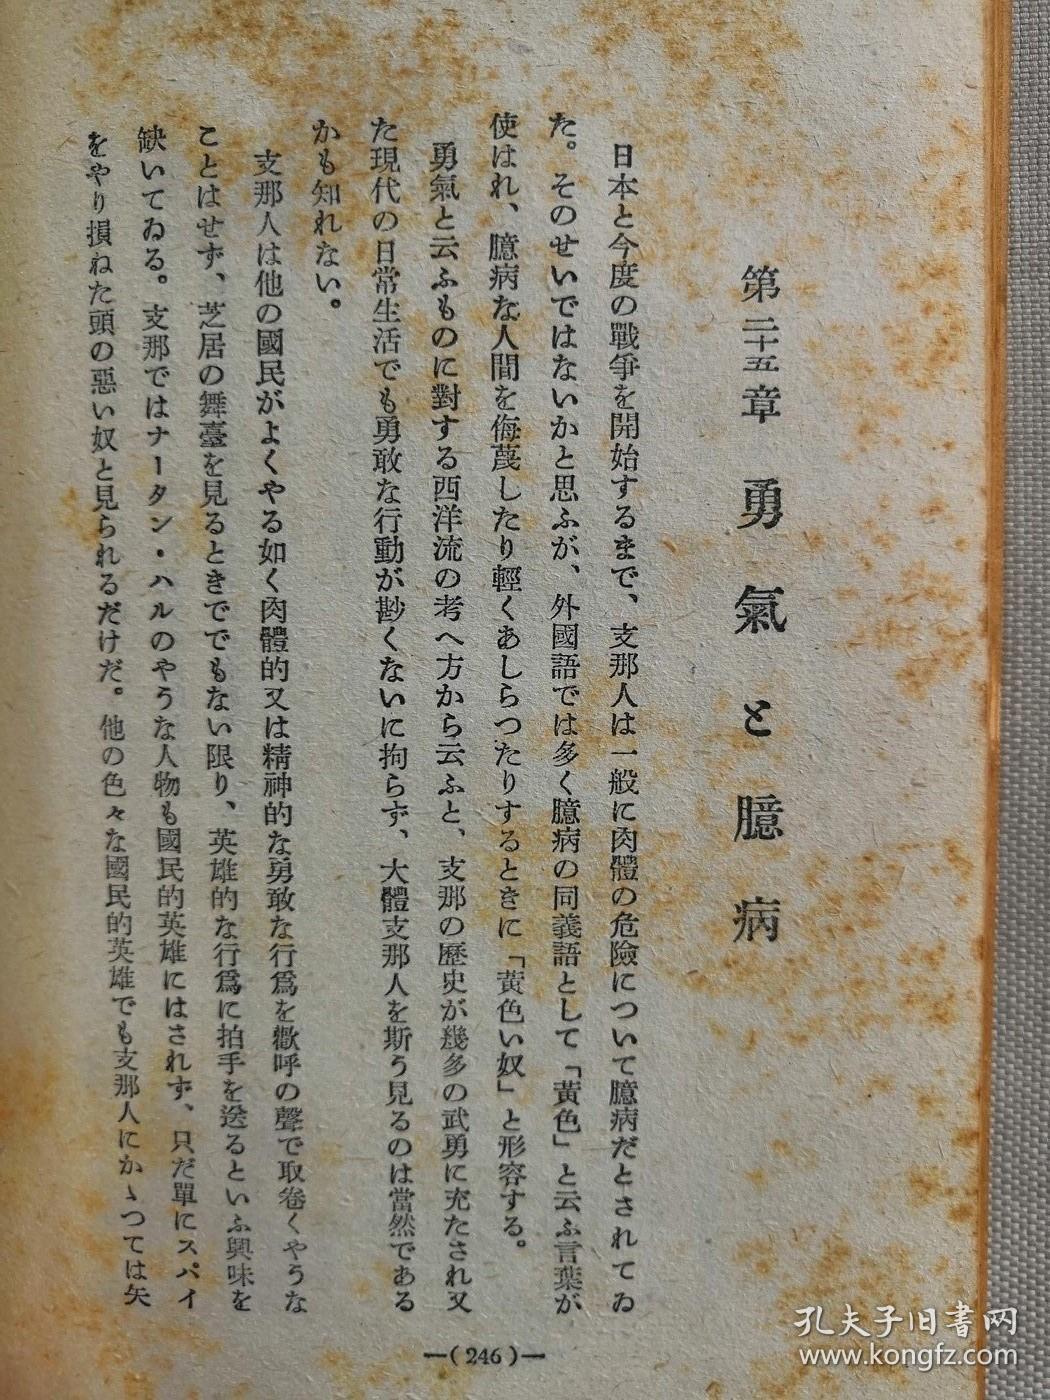 第二十五章　勇氣と臆病
日本と今度の戰爭を開始するまで、支那人は一般に肉體の危險について臆病だとされてゐ
た。そのせいではないかと思ふが、外國語では多く臆病の同義語として「黃色」と云ふ言葉が
使はれ、臆病な人間を侮蔑したり輕くあしらつたりするときに「黃色い奴」と形容する。
勇氣と云ふものに對する西洋流の考へ方から云ふと、支那の歷史が幾多の武勇に充たされ又
た現代の日常生活でも勇敢な行動が尠くないに拘らず、大體支那人を斯う見るのは當然である
かも知れない。
支那人は他の國民がよくやる如く肉體的又は精神的な勇敢な行爲を歡呼の聲で取卷くやうな
ことはせず、芝居の舞臺を見るときででもない限り、英雄的な行爲に拍手を送るといふ興味を
缺いてゐる。支那ではナータン・ハルのやうな人物も國民的英雄にはされず、只だ單にスパイ
をやり損ねた頭の惡い奴と見られるだけだ。他の色々な國民的英雄でも支那人にかゝつては矢
—(246)—
孔夫子旧書网
www.kongfz.com